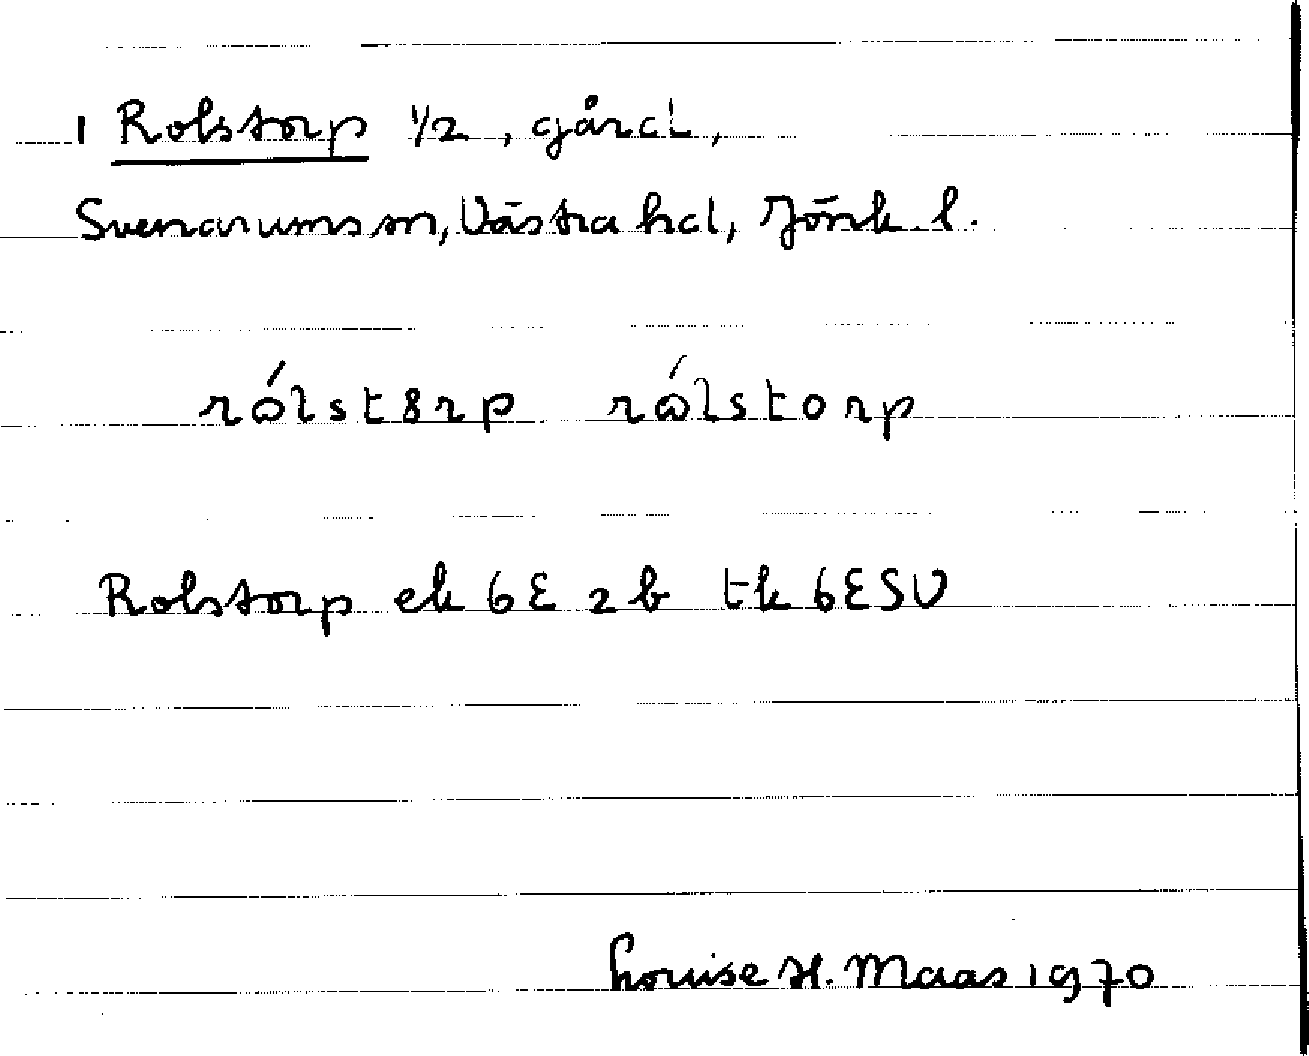 1 Rolstorp 1/2, gård,
Svenarums sn, Västra hd, Jönk. l.
rólst8rp rólstorp
Rolstorp ek 6E 2b tk 6ESV
Louise H. Maas 1970